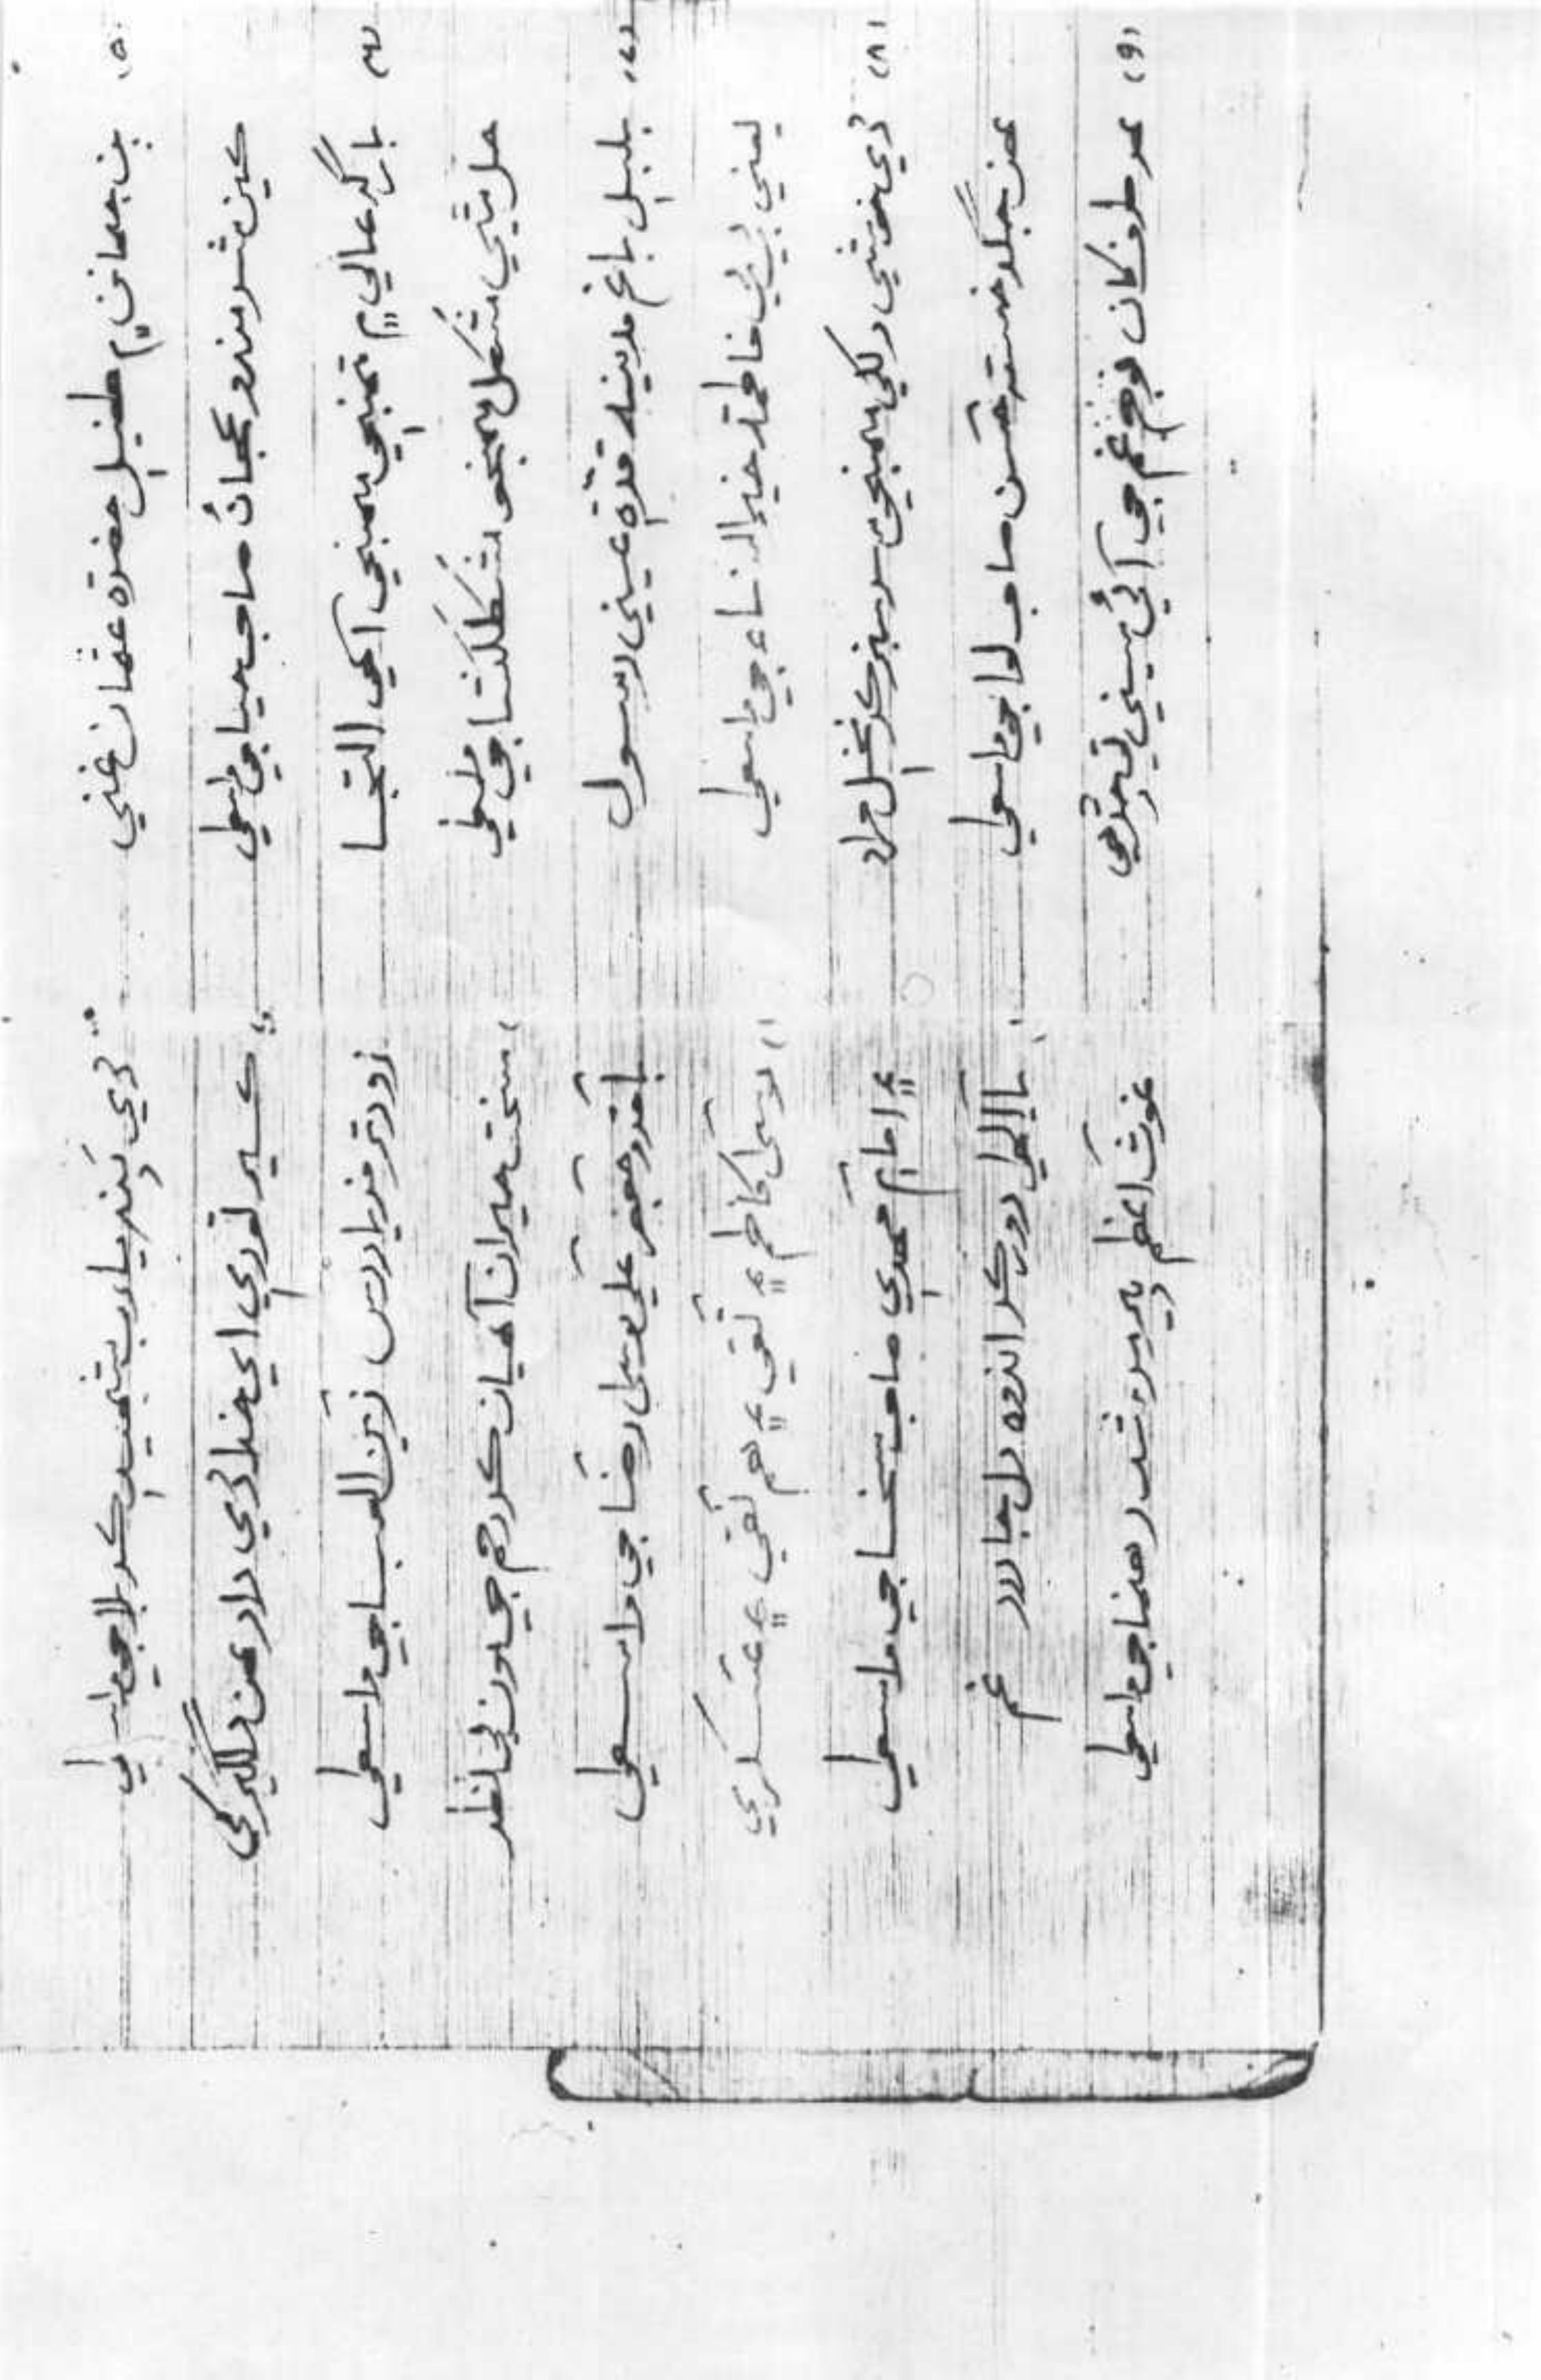 (۵) ٻن جهانن ۾ طفيل حضرة عثمان غني ڏي پَند يارب شهيد ڪربلا جي واسطي
ڪين شرمندو ٿجان صاحب حيا جي واسطي اي خدا ڏي داد مون دلگير کي
(۶) بارگہ عالي ۾ تنهنجي منهنجي آهي التجا زودتر فرياد رس زين العبا جي واسطي
حل ٿئي مُشکل منهنجو مُشکلکشا جي واسطي سخت حيران آهيان ڪر رحم جي مون تي نظر
(۷) بلبل باغ مدينہ قرة عيني رسول باقر و جعفر علي موسيٰ رضا جي واسطي
يعني بي بي فاطمة خير النساء جي واسطي موسيٰ کاظم ۽ تقي ۽ هم نقي ۽ عسڪري
(۸) ڏي خوشي دلکي منهنجي سرسبز ڪر نخل مراد ۽ امام مهدي صاحب سخا جي واسطي
مون جگر خسته حسن صاحب لوا جي واسطي يا الٰهي دور ڪر اندوه دل جا درد غم
(۹) هر طرف کان فوج غم جي آئي سيني تي چڙهي غوث اعظم پير مرشد رهنما جي واسطي